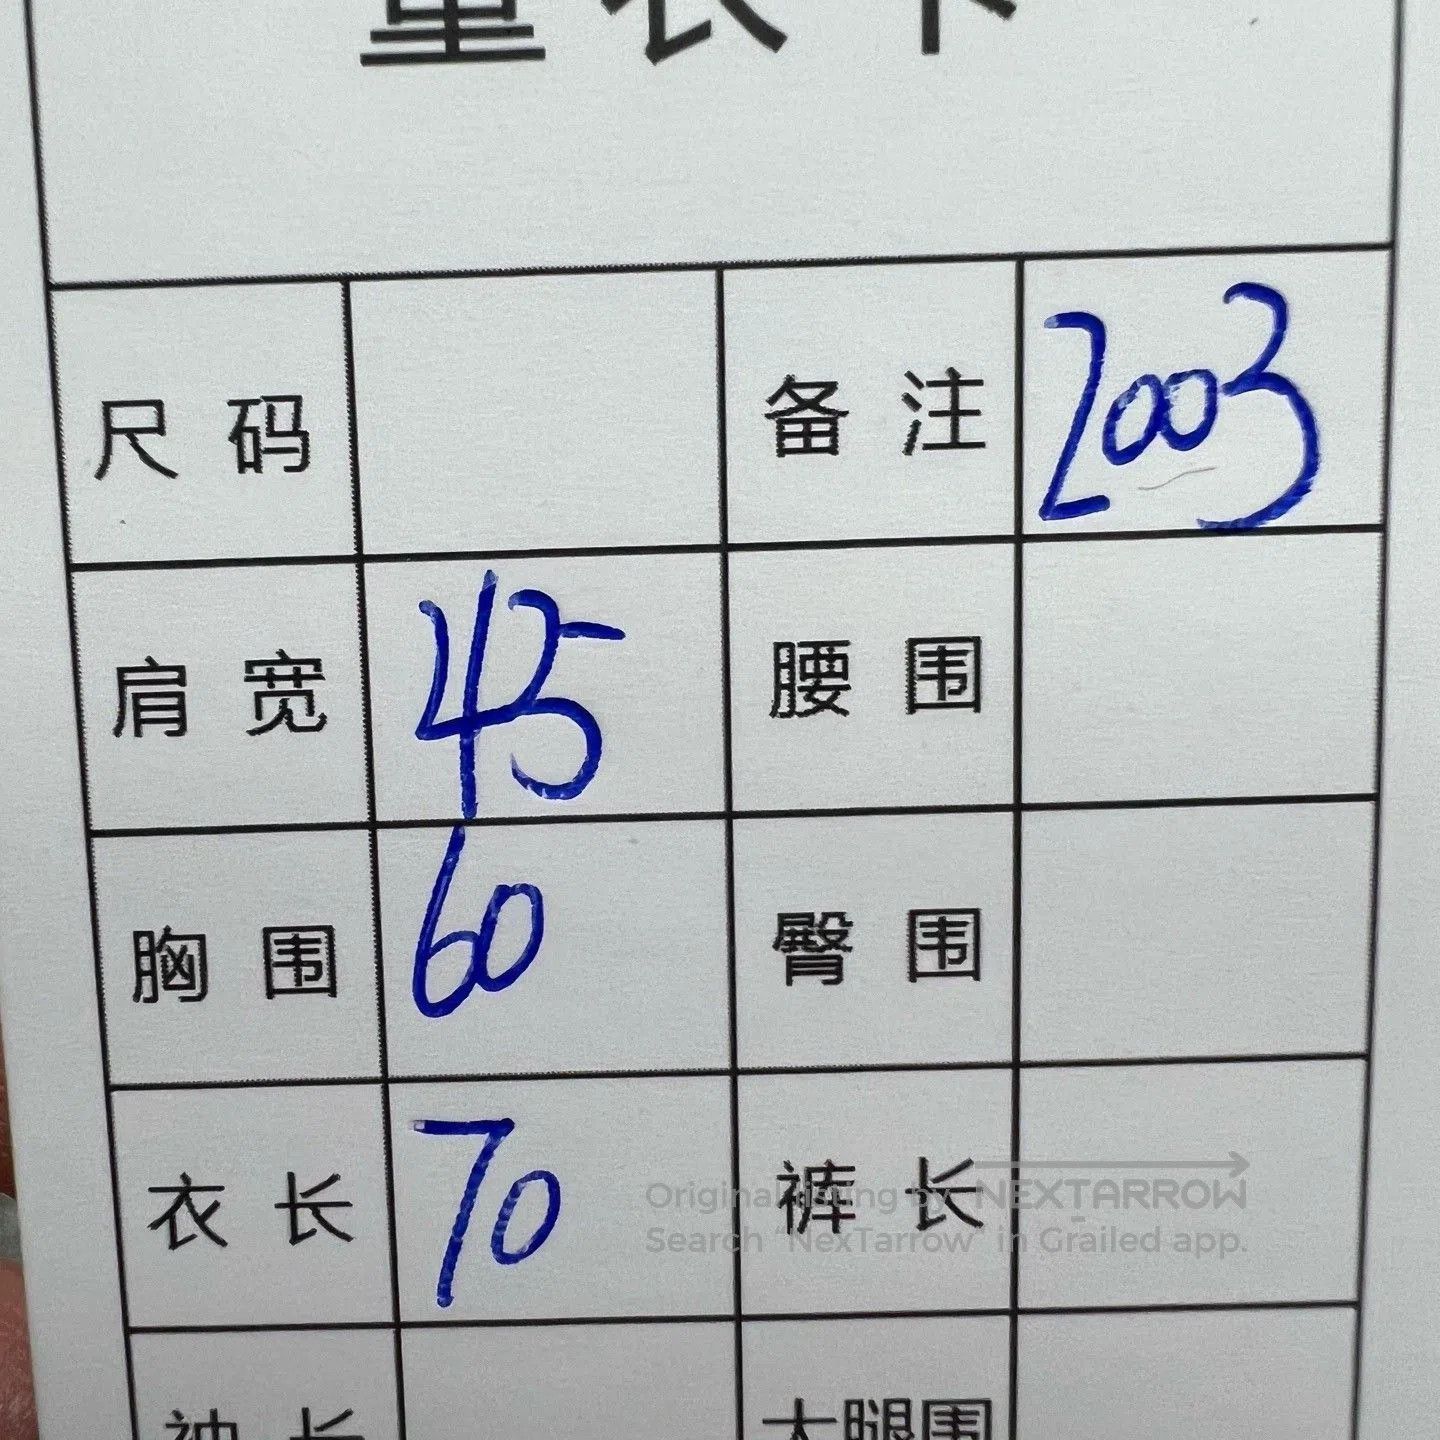 量衣卡
尺码 备注 2003
肩宽 45 腰围
胸围 60 臀围
衣长 70 裤长
Original listing by NEXTARROW
Search “NexTarrow” in Grailed app.
袖长 大腿围